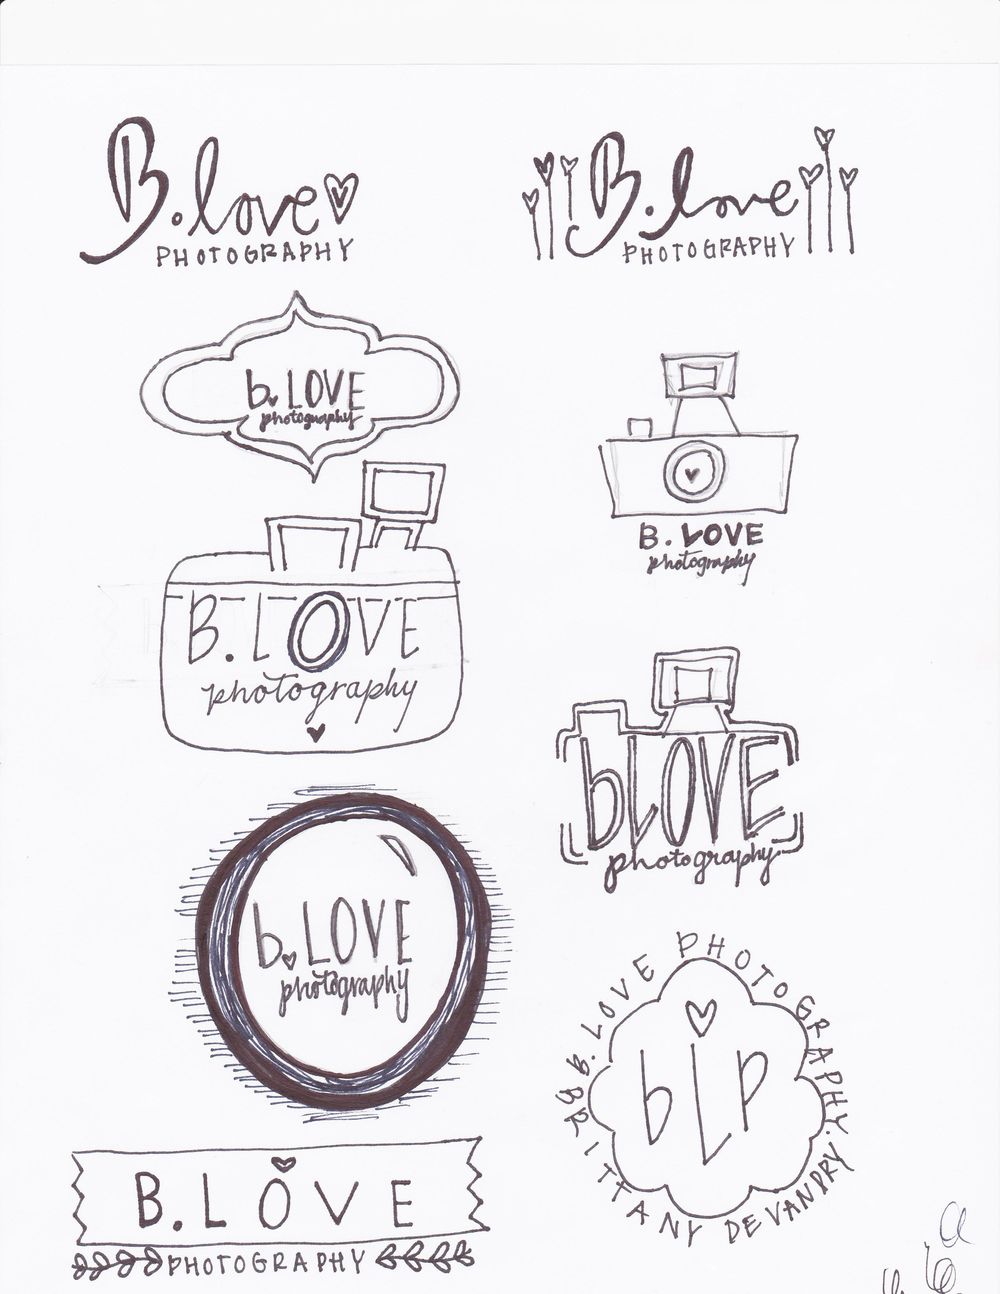 B.love
PHOTOGRAPHY
B.love
PHOTOGRAPHY
b.LOVE
photography
B. LOVE
photography
B.LOVE
photography
bLOVE
photography
b.LOVE
photography
B.LOVE PHOTOGRAPHY.
blp
BRITTANY DEVANDRY
B.LOVE
PHOTOGRAPHY